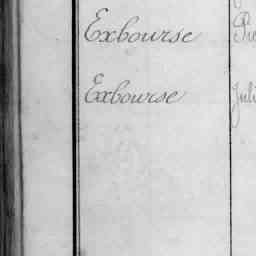 Exbourse
Exbourse Juli